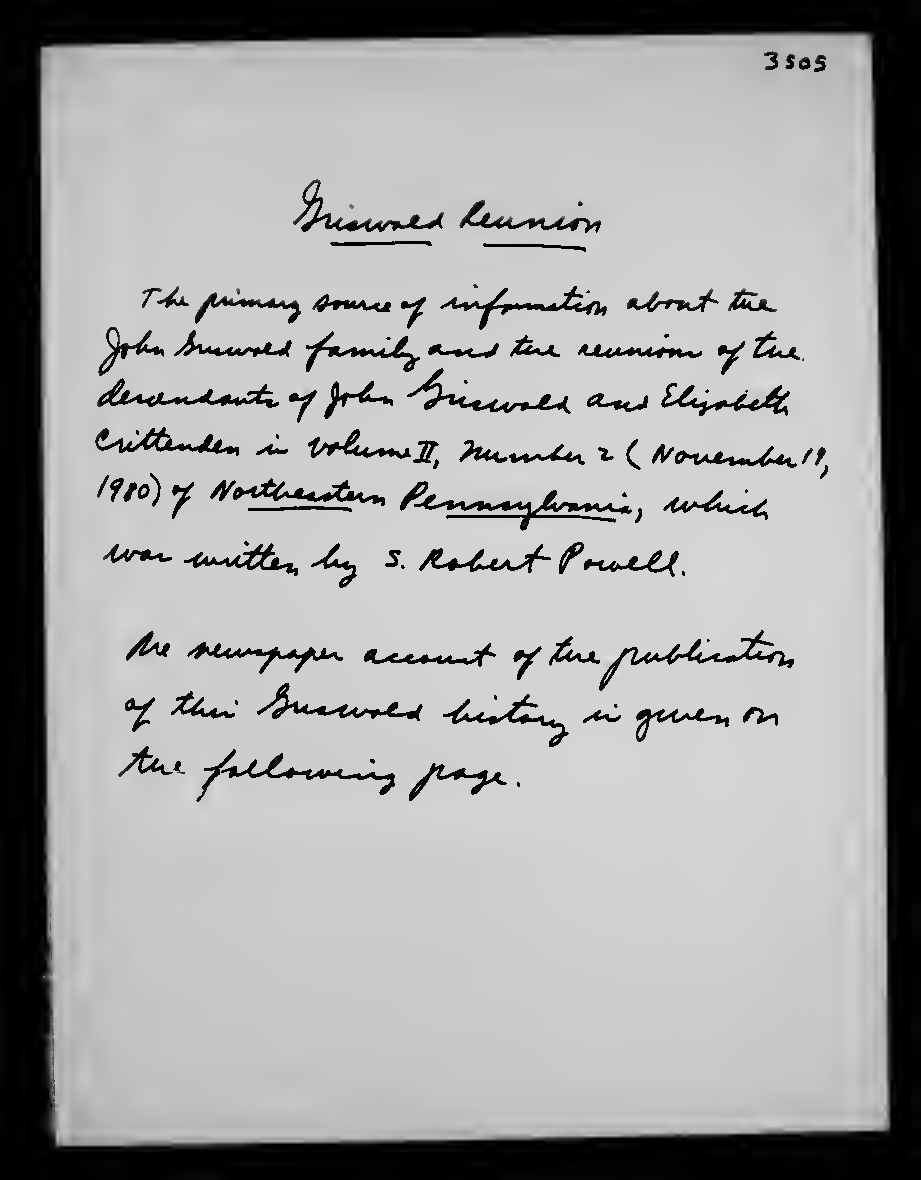 3505
Griswold Reunion
The primary source of information about the
John Griswold family and the reunions of the
descendants of John Griswold and Elizabeth
Crittenden is Volume II, Number 2 (November 19,
1980) of Northeastern Pennsylvania, which
was written by S. Robert Powell.
The newspaper account of the publication
of this Griswold history is given on
the following page.